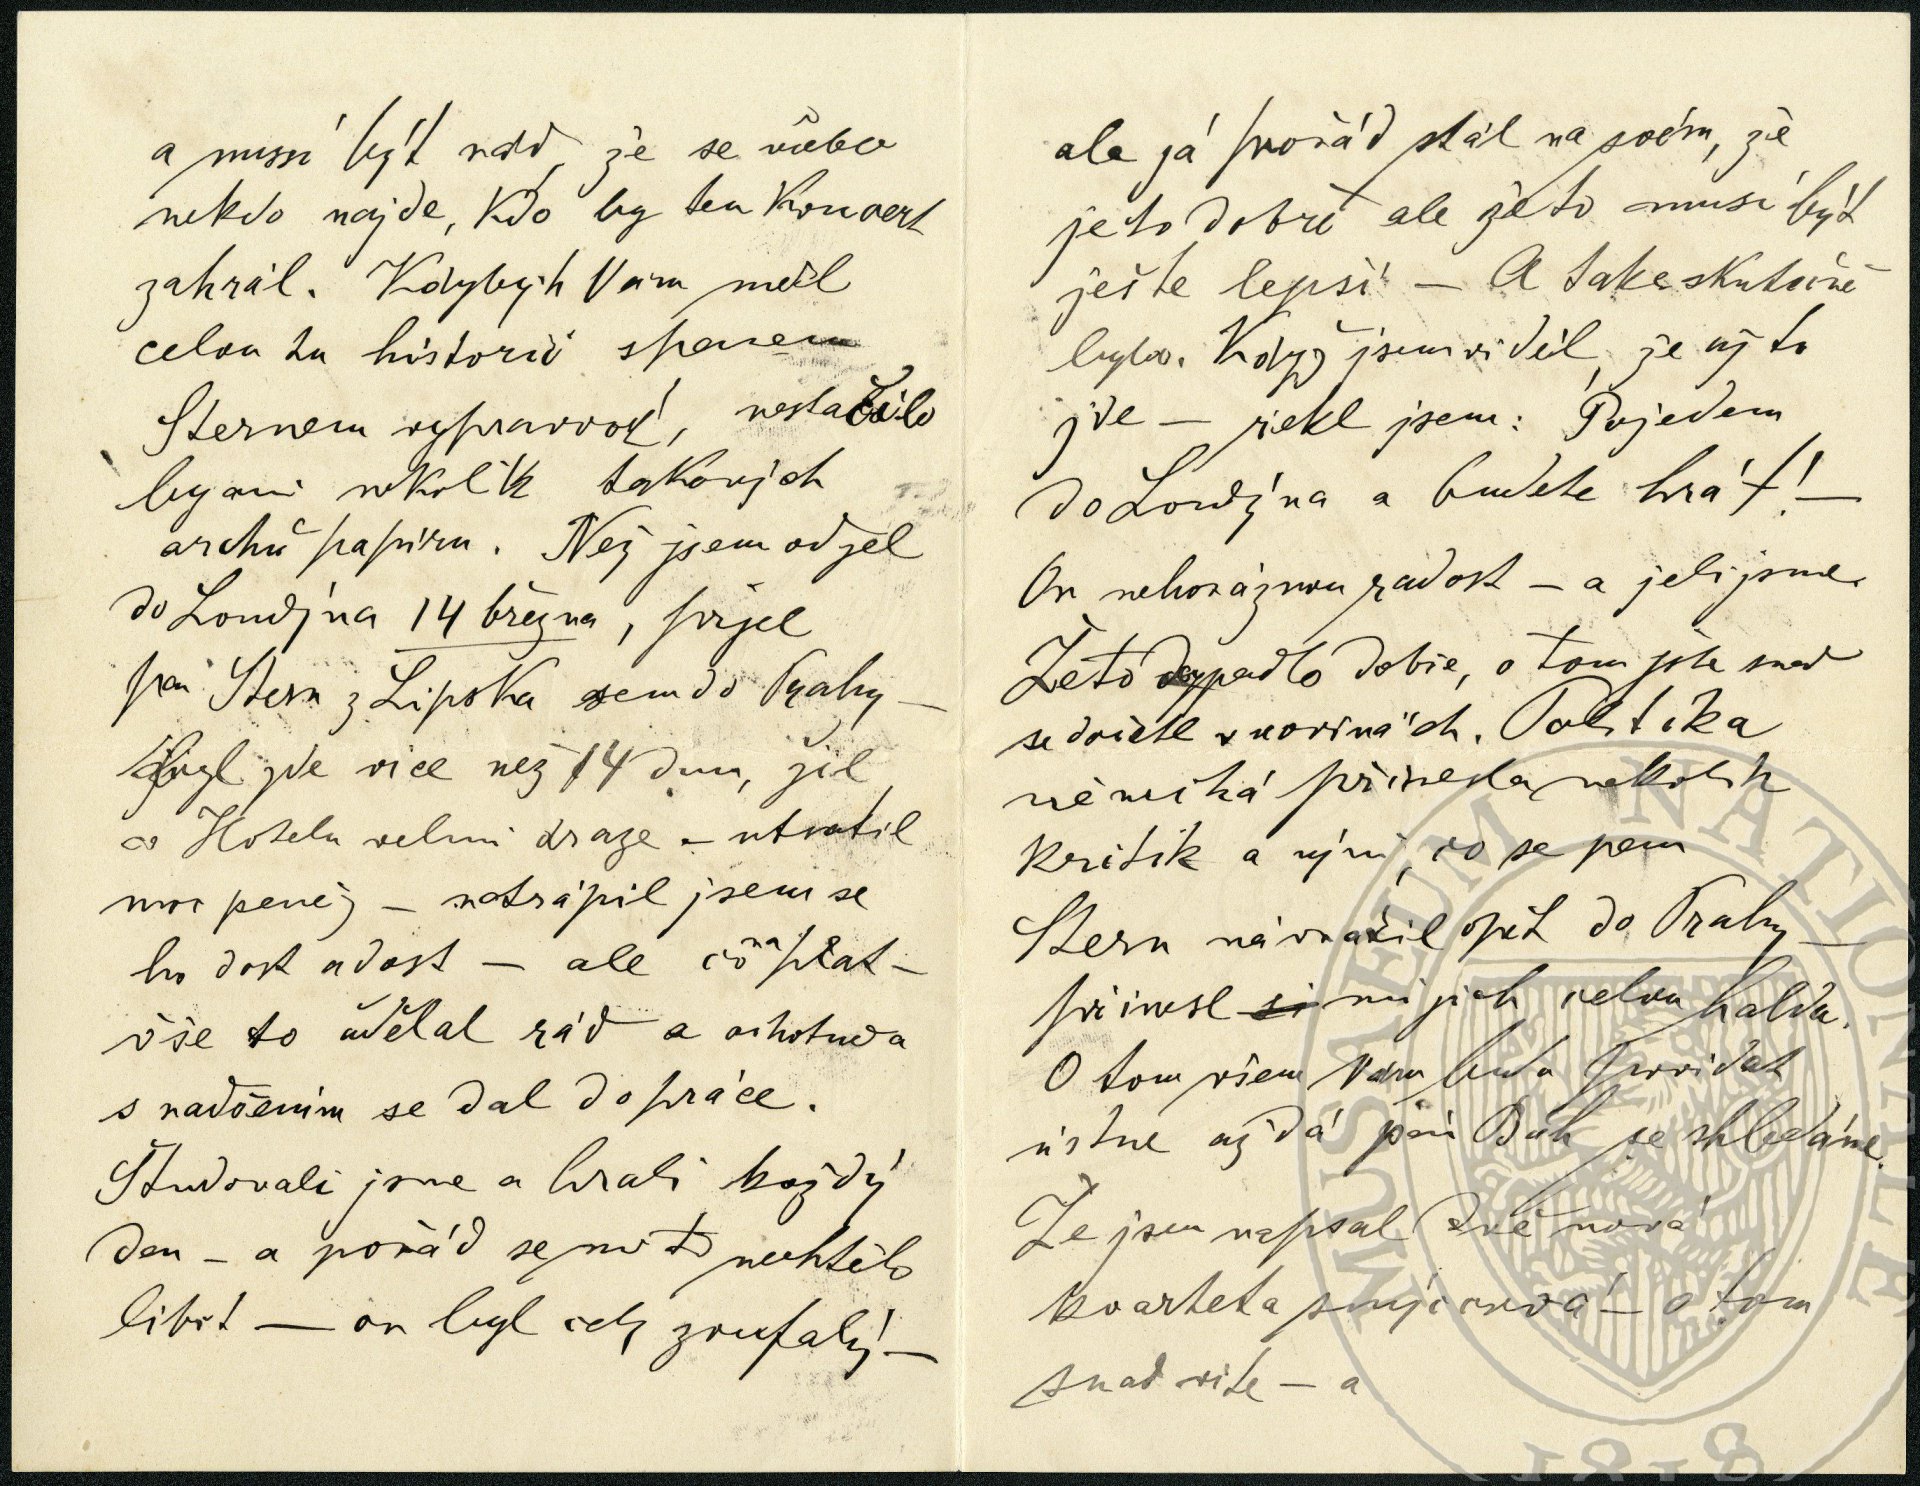 a mussí být rád, že se vůbec
nekdo najde, kdo by ten Koncert
zahrál. Kdybych Vám měl
celou tu historii s panem
Sternem vypravovat, nestačilo
by mi nekolik takových
archů papíru. Než jsem odjel
do Londýna 14 března, přijel
pan Stern z Lipska sem do Prahy —
byl zde vice než 14 dnu, žil
v Hotelu velmi draze – utratil
moc peněz – natrápil jsem se
ho dost a dost — ale co na plat –
vše to udělal rád a ochotně a
s nadšenim se dal do práce.
Študovali jsme a hrali každý
den – a pořád se mi to nechtělo
libit — on byl celý zoufalý —
ale já pořád stál na svém, že
je to dobré ale že to musí být
ješte lepsí — A take skutečně
bylo. Když jsem viděl, že už to
jde — řekl jsem: Pojedem
do Londýna a budete hrát! —
On nehoráznou radost – a jeli jsme.
Že to dopadlo dobře, o tom jste snad
se dočetl v novinách. Politika
německá přinesla nekolik
kritik a nyní, co se pan
Stern návratil opět do Prahy —
přinesl si mi jich celou haldu.
O tom všem Vám budu povidat
ústne až dá pán Bůh se shledáme.
Že jsem napsal dvě nová
kvarteta smyčcová – o tom
snad vite – a
MUSAEUM NATIONALE
1818